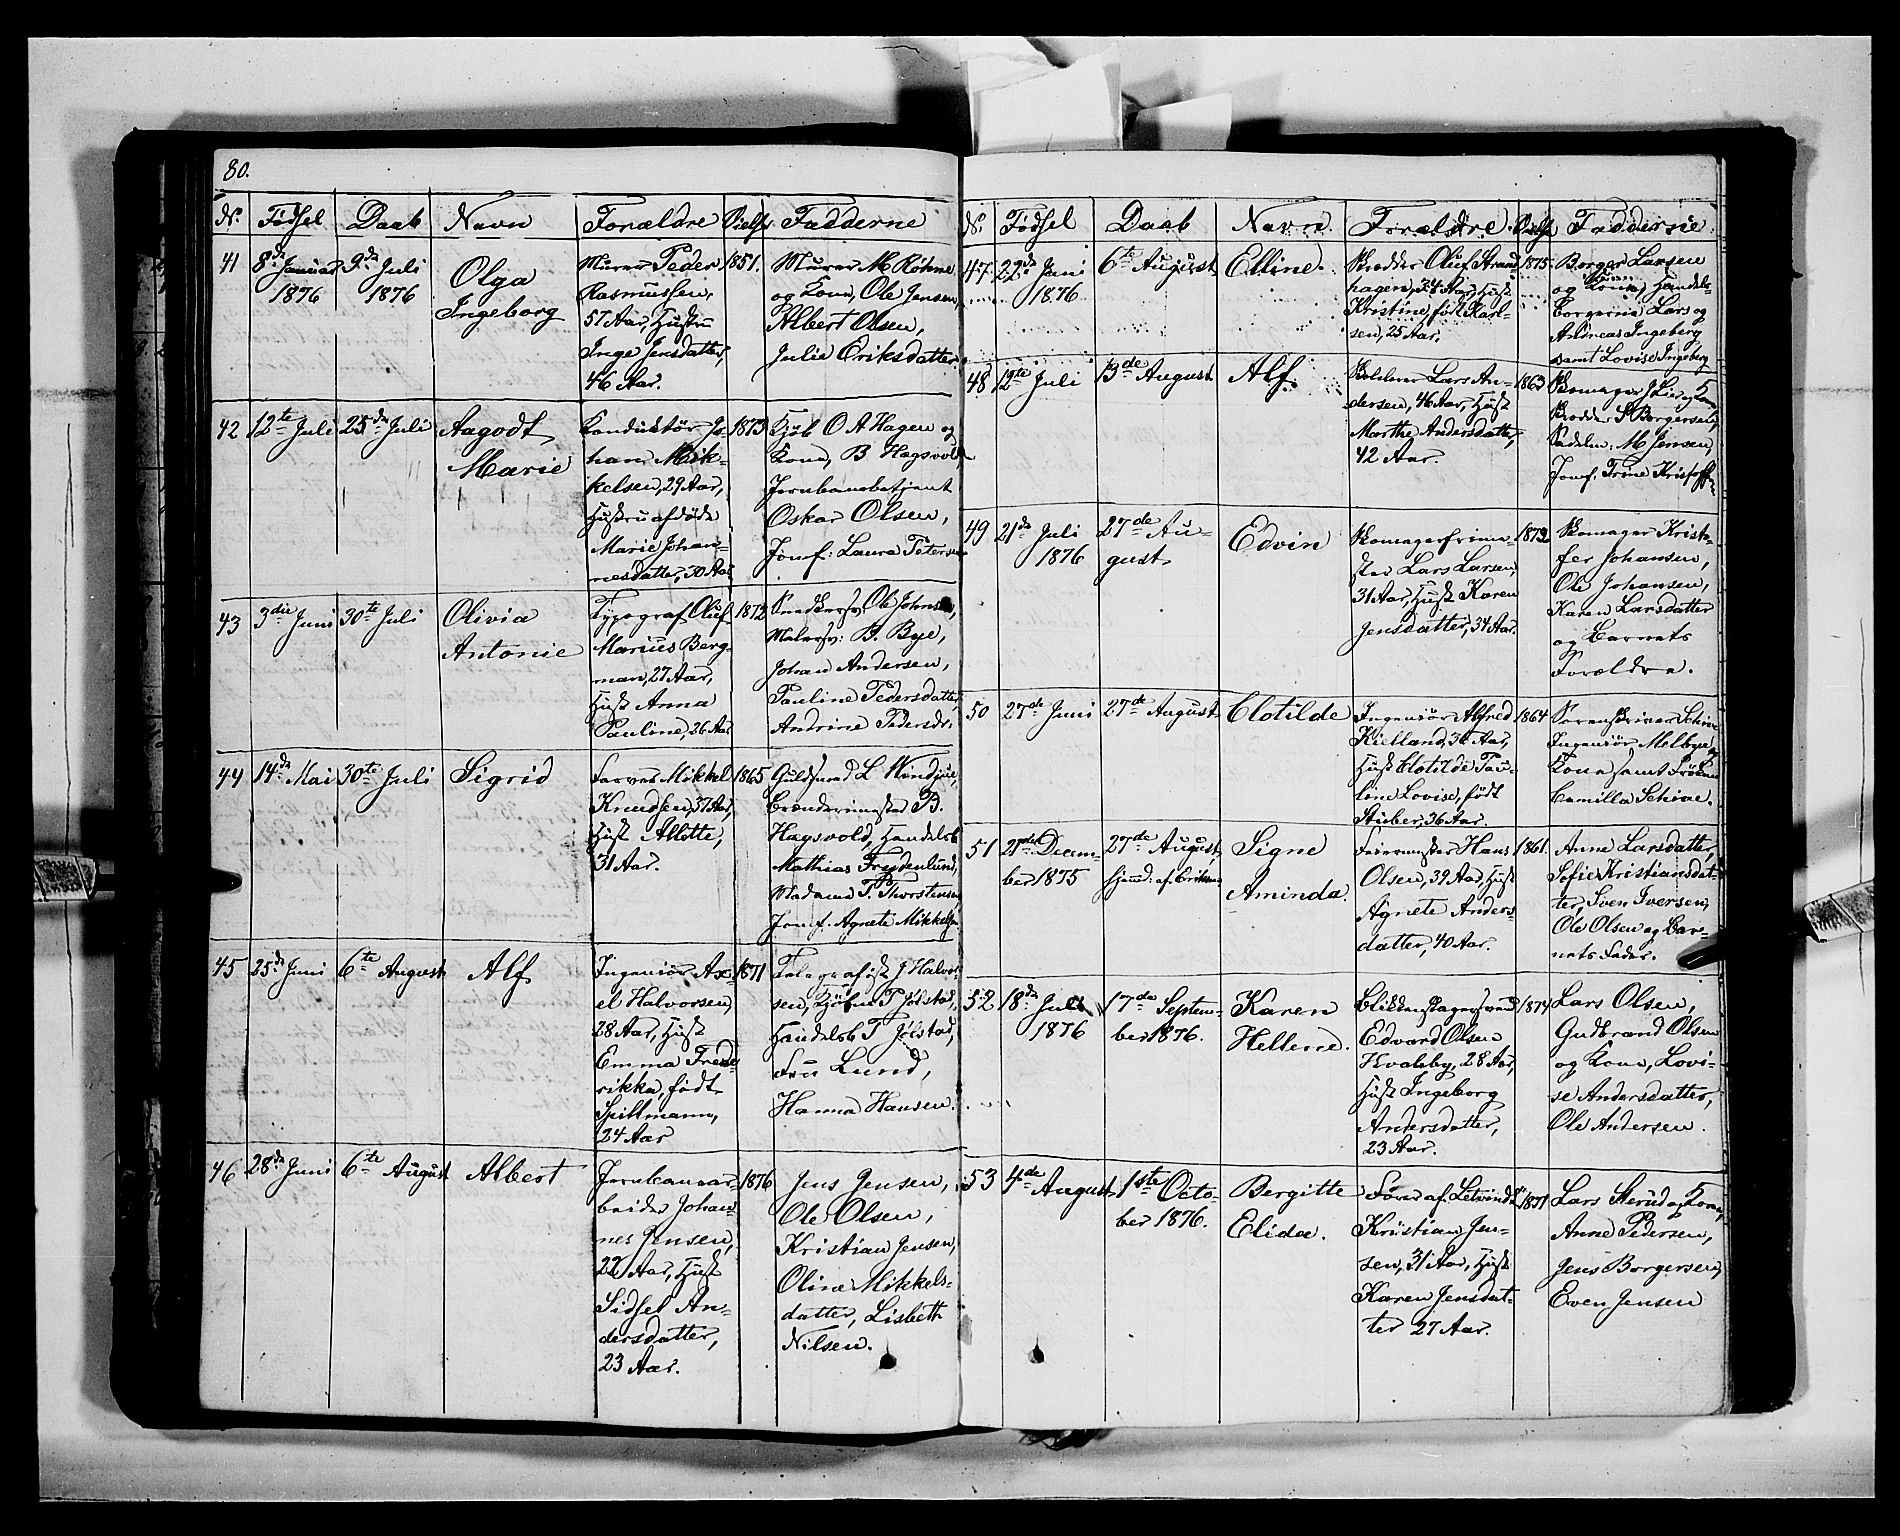 80.
N. Fødsel Daab Navn Forældre Vielse Fadderne
41 8de Januar 1876 9de Juli 1876 Olga Ingeborg
Murer Peder
Rasmussen,
57 Aar, Hustru
Inge Jensdatter,
46 Aar.
1851.
Murer M Røhme
og Kone, Ole Jensen,
Albert Olsen,
Julie Eriksdatter.
42 12te Juli 25de Juli Aagodt Marie
Konduktør Jo-
han Mik-
kelsen, 29 Aar,
Hustru afdøde
Marie Johan-
nesdatter, 30 Aar
1873
Kjøb O A Hagen og
Kone, B Hagsvold
Jernbanebetjent
Oskar Olsen,
Jomf: Laura Petersen
43 3die Juni 30te Juli Olivia Antonie
Typograf Oluf
Marius Berg-
man, 27 Aar,
Hust Anna
Pauline, 36 Aar
1872
Snedkersv. Ole Johnsen,
Malersv: B. Bye,
Johan Andersen,
Pauline Pedersdatter,
Andrine Pedersdr.
44 14de Mai 30te Juli Sigrid
Farver Mikkel
Knudsen, 37 Aar,
Hust Alette,
31 Aar.
1865
Guldsmed L
Brænderimester B.
Hagsvold, Handelsb
Mathias Frydenlund,
Madame P. Thorstensen
Jomf. Agnete Mikkelsen
45 25de Juni 6te August Alf.
Ingeniør Ax-
el Halvorsen,
28 Aar, Hust
Emma Frede-
rikke, født
Spillmann,
24 Aar
1871
Telegrafist J Halvor-
sen, Kjøbm P Jølstad,
Handelsb P Jølstad,
Fru Lund,
Hanna Hansen.
46 28de Juni 6te August Albert
Jernbanear-
beider Johan-
nes Jensen,
22 Aar, Hust
Sidsel An-
dersdatter,
23 Aar.
1876
Jens Jensen,
Ole Olsen,
Kristian Jensen,
Oline Mikkels-
datter, Lisbeth
Nilsen.
N. Fødsel Daab Navn. Forældre. Vielse Fadderne.
47 22de Juni 1876 6te August Elline.
Skrædder Oluf Strand-
hagen, 24 Aar, Hust
Kristine, født Karl-
sen, 25 Aar.
1875.
Borger Larsen
og Kone, Handels-
borgerne Lars og
Andreas Ingeberg
samt Lovise Ingeberg
48 12te Juli 13de August Alf.
Lars An-
dersen, 46 Aar, Hust
Marthe Andersdatter,
42 Aar.
1863
Skomager J Lie og Kone,
Skrædder S Borgersen,
Sadelm: M Jensen,
Jomf. Trine Kristoff
49 21de Juli 1876 27de August Edvin
Skomagerfrime-
ster Lars Larsen,
31 Aar, Hust Karen
Jensdatter, 34 Aar.
1872
Skomager Kristo-
fer Johansen,
Ole Johansen,
Karen Larsdatter
og Barnets
Forældre.
50 27de Juni 27de August Clotilde
Ingeniør Alfred
Kielland, 36 Aar,
Hust Clotilde Pau-
line Lovise, født
Stuber, 36 Aar.
1864
Sorenskriver Schive
Ingeniør Melbye og
Kone samt Frøken
Camilla Schive.
51 21de Decem-
ber 1875 27de August, hjemd. af Eriksen Signe Aminda.
Feiermester Hans
Olsen, 39 Aar, Hust
Agnete Anders-
datter, 40 Aar.
1861.
Anne Larsdatter,
Sofie Kristiansdat-
ter, Sven Iversen,
Ole Olsen og Bar-
nets Fader.
52 18de Juli 1876 17de Septem-
ber 1876. Karen Hellene.
Blikkenslagersvend
Edvard Olsen
Hvalsby, 28 Aar,
Hust Ingeborg
Andersdatter,
23 Aar.
1874
Lars Olsen,
Gudbrand Olsen
og Kone, Lovi-
se Andersdatter,
Ole Andersen.
53 4de August 1ste Octo-
ber 1876. Bergitte Elida.
Kristian Jen-
sen, 31 Aar, Hust
Karen Jensdat-
ter 27 Aar.
1871
Lars Sterud og Kone,
Anne Pedersen,
Jens Borgersen,
Even Jensen